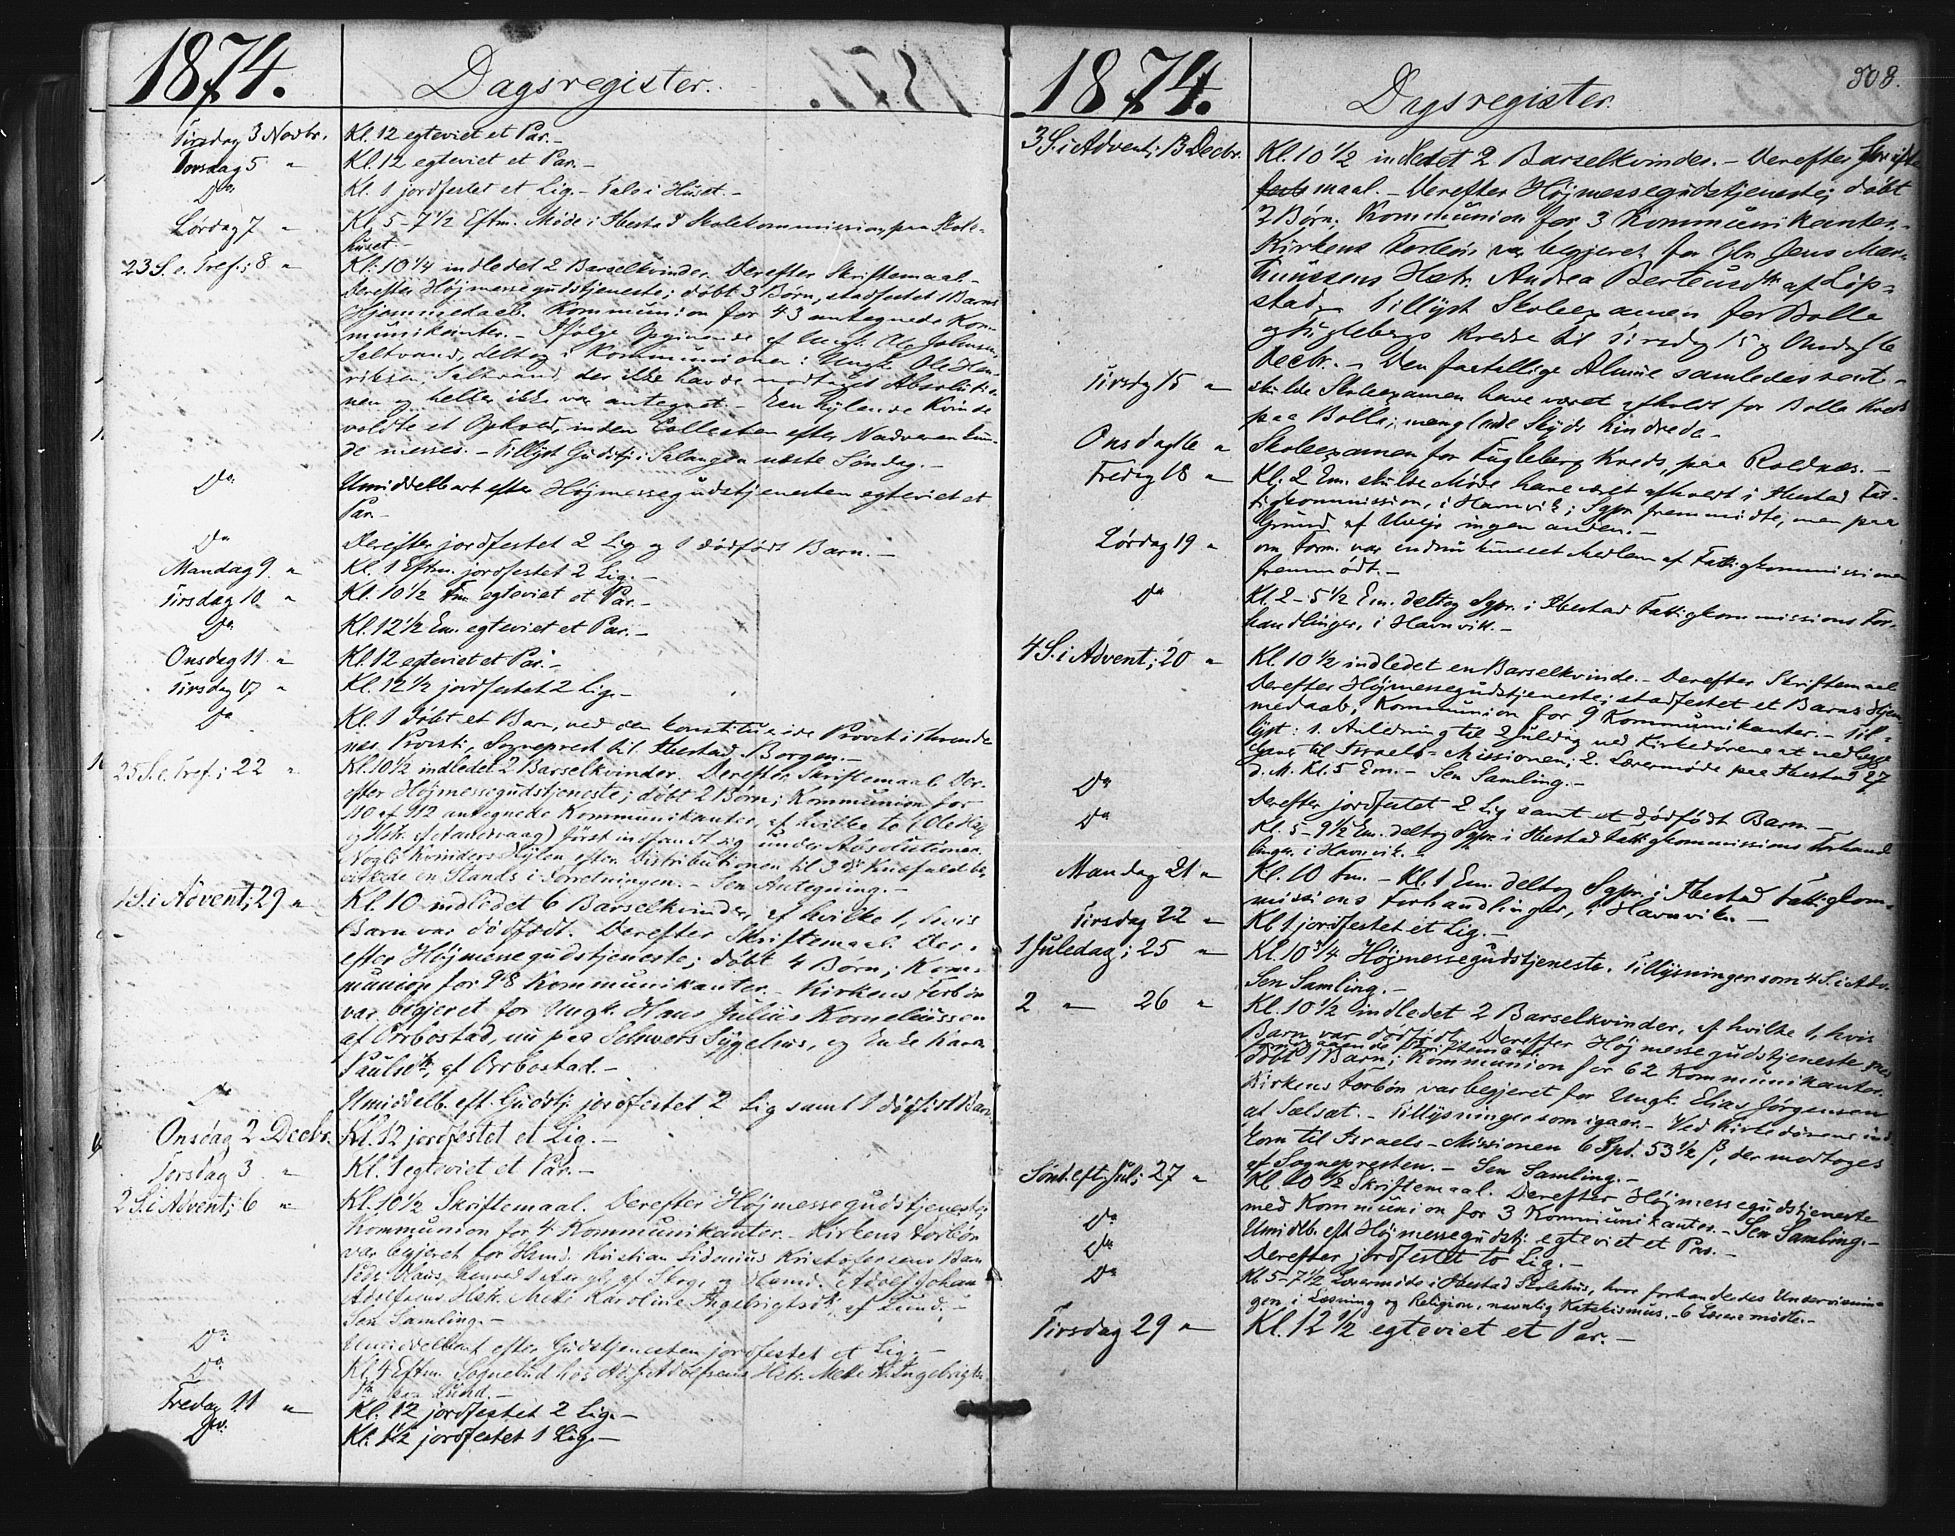 1874. Dagsregister.
Tirsdag 3 Novbr. Kl. 12 egteviet et Par.-
Torsdag 5 " Kl. 12 egteviet et Par.-
Do Kl. 1 jordfestet et Lig.- Tale i Huset.-
Lørdag 7 " Kl. 5-7½ Eftm. Møde i Ibestad Skolekommission paa Skole-
huset.-
23 S. e. Tref.; 8 " Kl. 10¼ indledet 2 Barselkvinder. Derefter Skriftemaal.-
Derefter Højmessegudstjeneste; døbt 3 Børn, stadfestet 1 Barns
Hjemmedaab. Kommunion for 43 antegnede Kom-
munikanter.- Ifølge Opgivende af Ungk. Ole Johnsen,
Saltvand, deltog i Kommunionen: Ungk. Ole Hen-
riksen, Saltvand, der ikke havde modtaget Absolutio-
nen og heller ikke var antegnet.- Een hylende Kvinde
voldte et Ophold, inden Collecten efter Nadveren kun-
de messes.- Tillyst Gudstj. i Salangen næste Søndag.-
Do Umiddelbart efter Højmessegudstjenesten egteviet et
Par.-
Do Derefter jordfestet 2 Lig og 1 dødfødt Barn.-
Mandag 9 " Kl. 1 Eftm. jordfestet 2 Lig.-
Tirsdag 10 " Kl. 10½ Fm. egteviet et Par.-
Do Kl. 12½ Em. egteviet et Par.-
Onsdag 11 " Kl. 12 egteviet et Par.-
Tirsdag 17 " Kl. 12½ jordfestet 2 Lig.-
Do Kl. 1 døbt et Barn, ved den konstituerede Provst i
Provsti, Sogneprest til Ibestad Borgen.-
25 S. e. Tref.; 22 " Kl. 10½ indledet 2 Barselkvinder. Derefter Skriftemaal. Der-
efter Højmessegudstjeneste; døbt 2 Børn; Kommunion for
af 42 antegnede Kommunikanter, af hvilke to (Ole
og Hstr. af ) først indfandt sig under Absolutionen.
Nogle Kvinders Hylen efter Distributionen til 3die Knæfald be-
virkede en Stands i Forretningen.- Sen Antegning.-
1 S. i Advent; 29 " Kl. 10 indledet 6 Barselkvinder, af hvilke 1, hvis
Barn var dødfødt. Derefter Skriftemaal. Der-
efter Højmessegudstjeneste; døbt 4 Børn; Kom-
munion for 98 Kommunikanter.- Kirkens Forbøn
var begjeret for Ungk. Hans Julius Korneliussen
af Orrbostad, nu paa Sygehus, og Enke Karen
Paulsdtr, af Orrbostad.-
Do Umiddelb. eft. Gudstj. jordfestet 2 Lig samt 1 dødfødt Barn.
Onsdag 2 Decbr. Kl. 12 jordfestet et Lig.-
Torsdag 3 " Kl. 1 egteviet et Par.-
2 S. i Advent; 6 " Kl. 10½ Skriftemaal. Derefter Højmessegudstjeneste;
Kommunion for 4 Kommunikanter.- Kirkens Forbøn
var begjeret for Husmd. Kristian Sidenius Kristofersens Barn
Peder Klaus, og Husmd. Adolf Johan
Adolfsens Hstr. Mette Karoline Ingebrigtsdtr. af Lund.-
Sen Samling.-
Do Umiddelbart efter Gudstjenesten jordfestet et Lig.-
Do Kl. 4 Eftm. Sognebud hos Ad. J. Adolfsens Hstr. Mette K. Ingebrigts-
dtr. paa Lund.-
Fredag 11 " Kl. 12 jordfestet 2 Lig.-
Do. Kl. 12 jordfestet 1 Lig.-
1874. Dagsregister. 308.
3 S. i Advent; 13 Decbr. Kl. 10½ indledet 2 Barselkvinder.- Derefter Skrifte
maal.- Derefter Højmessegudstjeneste; døbt
2 Børn. Kommunion for 3 Kommunikanter.-
Kirkens Forbøn var begjeret for Gbr. Jens Mar-
Hstr. Andrea Berteusdtr af Løp-
stad.- Tillyst Skoleexamen for Bolla
og Fugleberg Kredse til Tirsdag 15 og Onsdag 16
Decbr.- Den faatallige Almue samledes sent.-
Tirsdag 15 " skulde Skoleexamen have været afholdt for Bolla Kreds
paa Bolla; manglende Skyds hindrede.-
Onsdag 16 " Skoleexamen for Fugleberg Kreds, paa Roldnæs.-
Fredag 18 " Kl. 2 Em. skulde Møde have været afholdt i Ibestad Fat-
tigkommission, i Havnvik; Sgpr. fremmødte, men paa
Grund af Uvejr ingen anden.-
Lørdag 19 " om Form. var endnu kun eet Medlem af Fattigkommissionen
fremmødt.-
Do Kl. 2-5½ Em. deltog Sgpr. i Ibestad Fattigkommissions For-
handlinger, i Havnvik.-
4 S. i Advent; 20 " Kl. 10½ indledet en Barselkvinde.- Derefter Skriftemaal.
Derefter Højmessegudstjeneste; stadfestet et Barns Hjem-
medaab; Kommunion for 9 Kommunikanter.- Til-
lyst: 1. Anledning til 2 Juledag ved Kirkedørene at nedlægge
til Israels-Missionen; 2. Lærermøde paa Ibestad 27
d. M. Kl. 5 Em.- Sen Samling.-
Do Derefter jordfestet 2 Lig samt et dødfødt Barn.-
Do Kl. 5-9½ Em. deltog Sgpr. i Ibestad Fattigkommissions Forhand-
linger, i Havnvik.-
Mandag 21 " Kl. 10 Fm.- Kl. 1 Em. deltog Sgpr. i Ibestad Fattigkom-
missions Forhandlinger, i Havnvik.-
Tirsdag 22 " Kl. 1 jordfestet et Lig.-
1 Juledag; 25 " Kl. 10¾ Højmessegudstjeneste. Tillysninger som 4 S. i Adv.
Sen Samling.-
2 " 26 " Kl. 10½ indledet 2 Barselkvinder, af hvilke 1, hvis
Barn var dødfødt. Derefter Højmessegudstjeneste med
foregaaende Skriftemaal.
døbt 1 Barn; Kommunion for 62 Kommunikanter.
Kirkens Forbøn var begjeret for Ungk. Elias Jørgensen
at Sælsæt.- Tillysninger som igaar.- Ved Kirkedørene ind-
kom til Israels-Missionen 6 Spd. 53½ β, der modtoges
af Sognepresten.- Sen Samling.-
Sønd. eft. Jul; 27 " Kl. 10½ Skriftemaal. Derefter Højmessegudstjeneste
med Kommunion for 3 Kommunikanter.- Sen Samling.-
Do Umidlb. eft Højmessegudstj. egteviet et Par.-
Do Derefter jordfestet to Lig.-
Do Kl. 5-7½ Lærermøde i Ibestad Skolehus, hvor forhandledes Undervisnin-
gen i Læsning og Religion, navnlig Katekismus.- 6 Lærere mødte.-
Tirsdag 29 " Kl. 12½ egteviet et Par.-